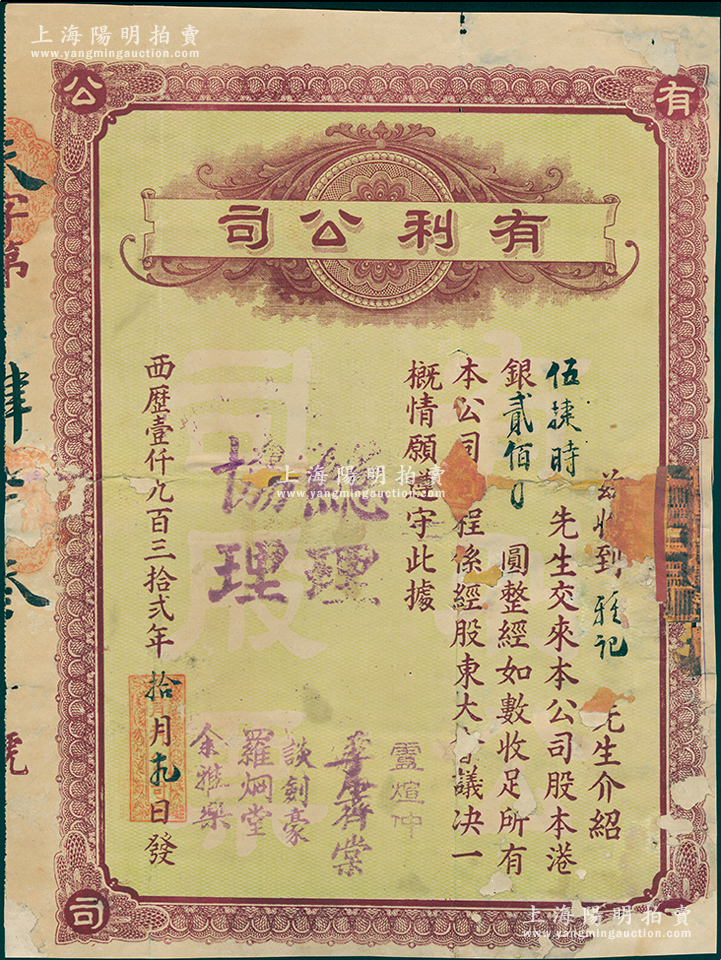 上海陽明拍賣
www.yangmingauction.com
有
公
司
有利公司
茲收到雅記 先生介紹
伍捷時 先生交來本公司股本港
銀貳佰 圓整經如數收足所有
本公司 程係經股東大 議決一
概情願遵守此據
總理
協理
上海陽明拍賣
www.yangmingauction.com
譚劍豪
羅炯堂
余雅樂
西歷壹仟九百三拾弍年拾月 日發
字第
肆
號
上海陽明拍賣
www.yangmingauction.com